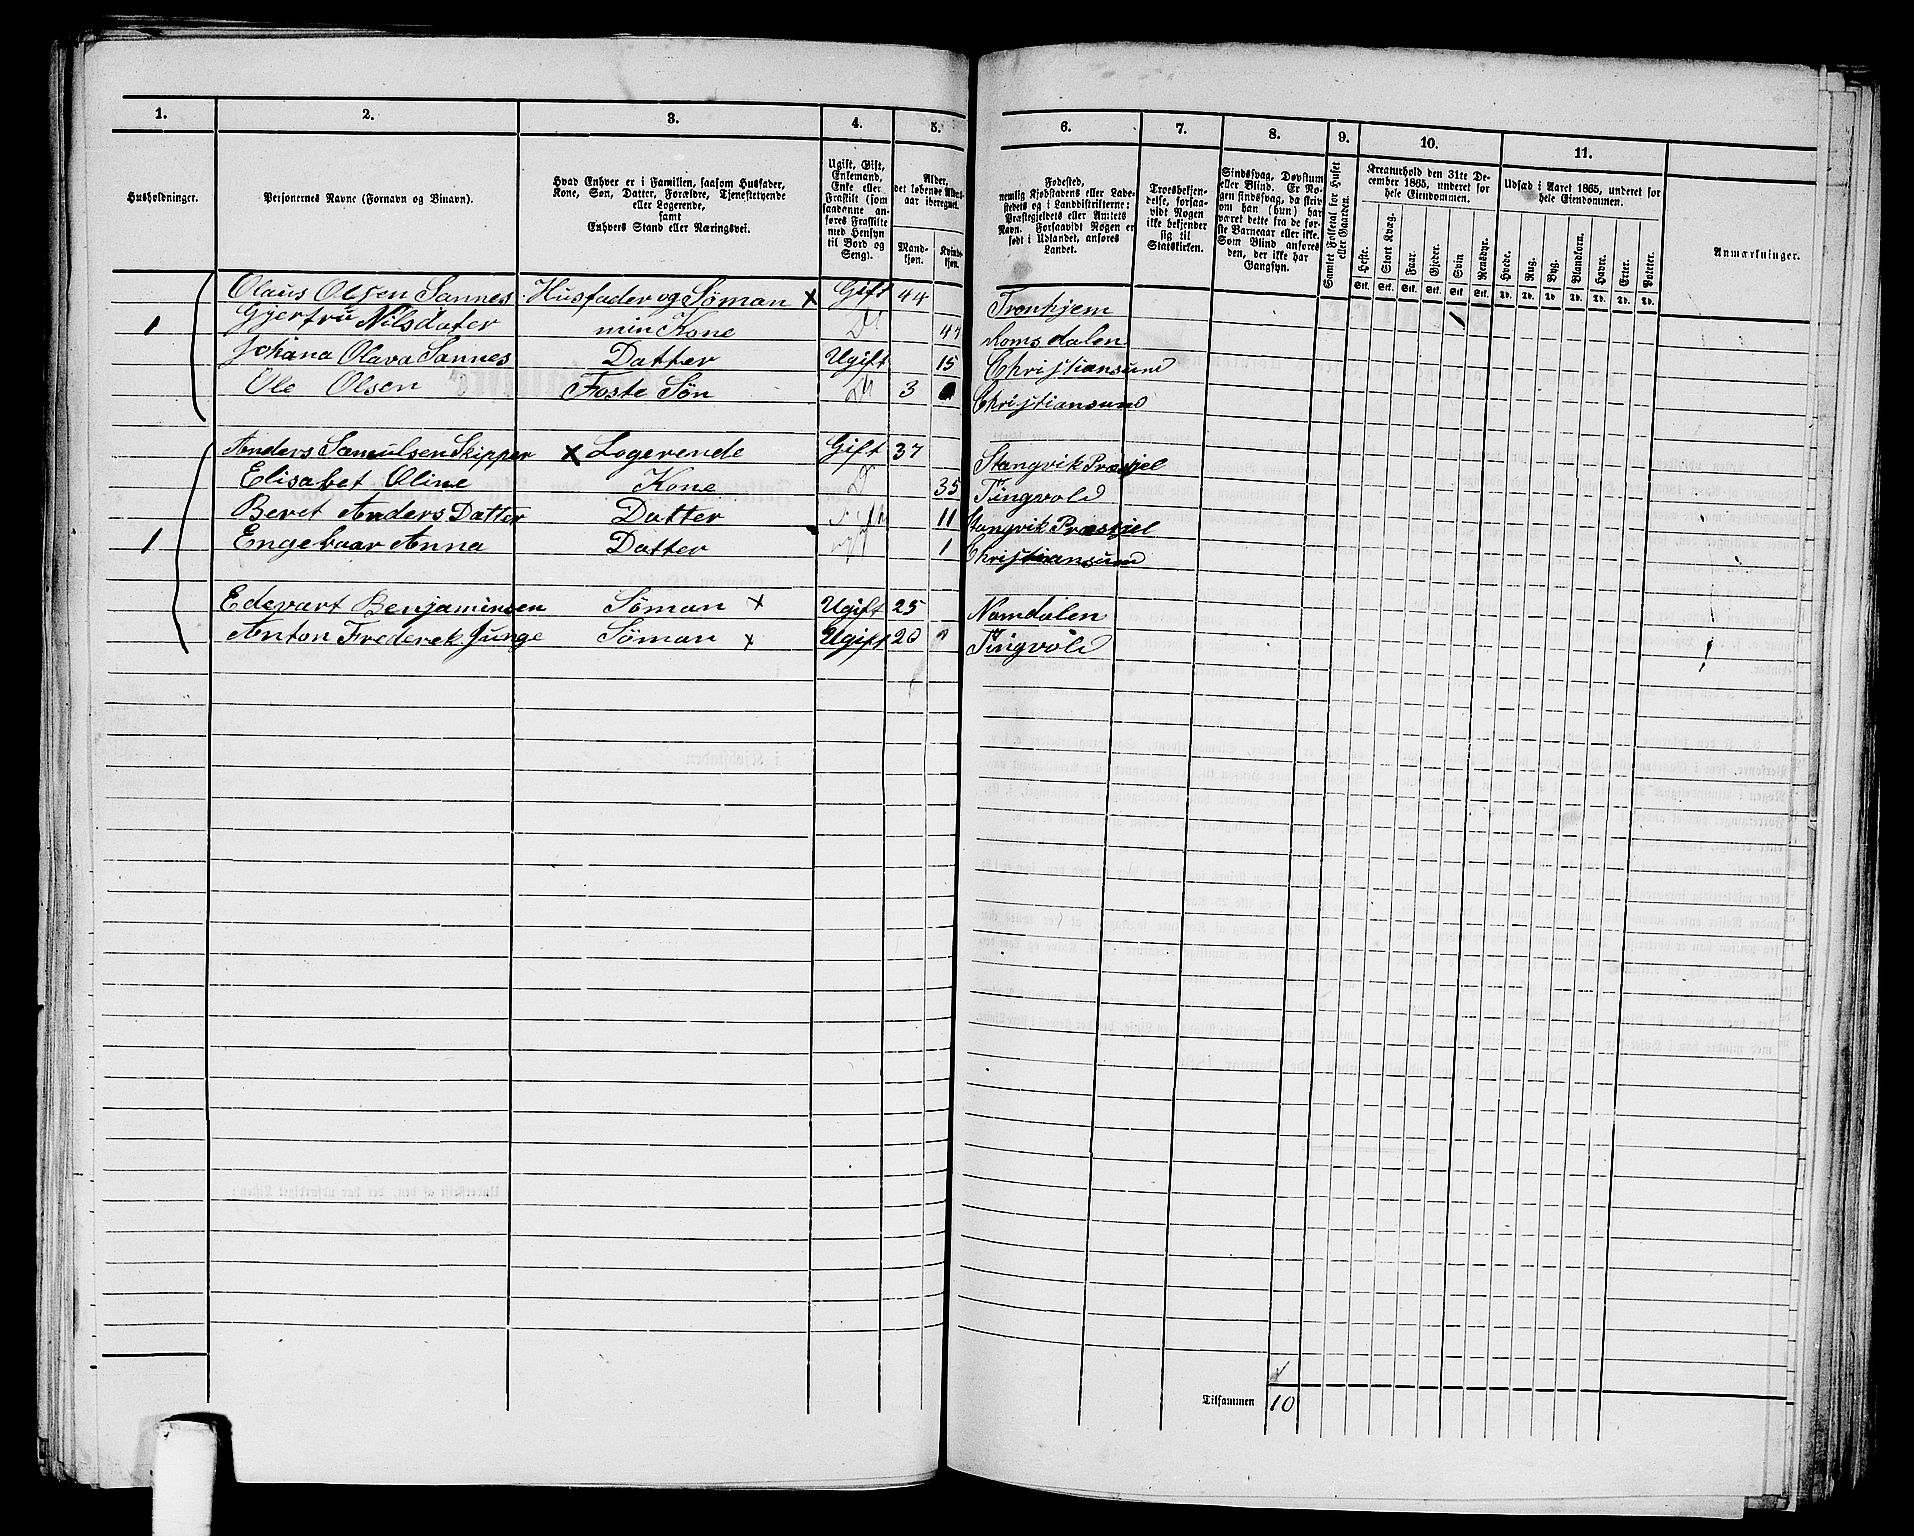 1. 2. 3. 4. 5. 6. 7. 8. 9. 10. 11.
Husholdninger.
Personernes Navne (Fornavn og Binavn).
Hvad Enhver er i Familien, saasom Husfader,
Kone, Søn, Datter, Forældre, Tjenestetyende
eller Logerende,
samt
Enhvers Stand eller Næringsvei.
Ugift, Gift,
Enkemand,
Enke eller
Fraskilt (som
saadanne an-
føres Fraskilte
med Hensyn
til Bord og
Seng).
Alder,
det løbende Alders-
aar iberegnet.
Mand-
kjøn.
Kvinde-
kjøn.
Fødested,
nemlig Kjøbstadens eller Lade-
stedets og i Landdistrikterne:
Præstegjeldets eller Amtets
Navn. Forsaavidt Nogen er
født i Udlandet, anføres
Landet.
Troesbekjen-
delse, forsaa-
vidt Nogen
ikke bekjender
sig til
Statskirken.
Sindssvag, Døvstum
eller Blind. Er No-
gen sindssvag, da skriv
om han (hun) har
været dette fra de før-
ste Barneaar eller ikke.
Som Blind anføres
den, der ikke har
Gangsyn.
Samlet Folketal for Huset
eller Gaarden.
Kreaturhold den 31te De-
cember 1865, underet for
hele Eiendommen.
Heste. Stort Kvæg. Faar. Gjeder. Svin Rensdyr.
Stk. Stk. Stk. Stk. Stk. Stk.
Udsæd i Aaret 1865, underet for
hele Eiendommen.
Hvede. Rug. Byg. Blandkorn. Havre. Erter. Poteter.
Td. Td. Td. Td. Td. Td. Td.
Anmærkninger.
Olaus Olsen Sannes Husfader og Søman x Gift 44 Tronhjem
1 Gjertru Nilsdater min Kone Do 44 Romsdalen 1
Johana Olava Sannes Datter Ugift 15 Christiansund
Ole Olsen Foste Søn 3 Christiansund
Anders Samulsen Skipper x Logerende Gift 37 Stangvik Præsjel
Elisabet Oline Kone D 35 Tingvold
Beret Anders Datter Datter 11 Stangvik Præstjel
1 Engebaar Anna Datter 1 Christiansund
Edevart Benjaminsen Søman x Ugift 25 Namdalen
Anton Frederek Junge Søman x Ugift 20 Tingvold
Tilsammen 10